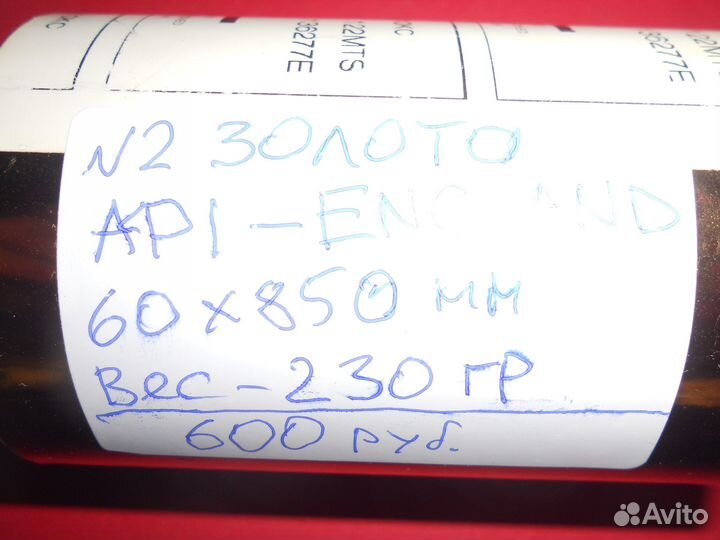 22MTS
36277E
36277E
N2 ЗОЛОТО
API - ENGLAND
60х850 мм
Вес - 230 гр
600 руб.
Avito